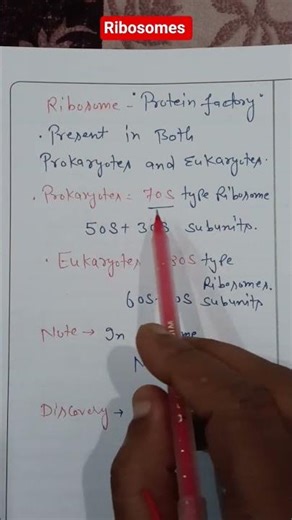 Ribosomes
Ribosome - "Protein factory"
• Present in Both
Prokaryotes and Eukaryotes.
• Prokaryotes = 70S type Ribosome
50S + 30S subunits.
• Eukaryotes 80S type
Ribosomes.
60S subunits
Note → In
Discovery →